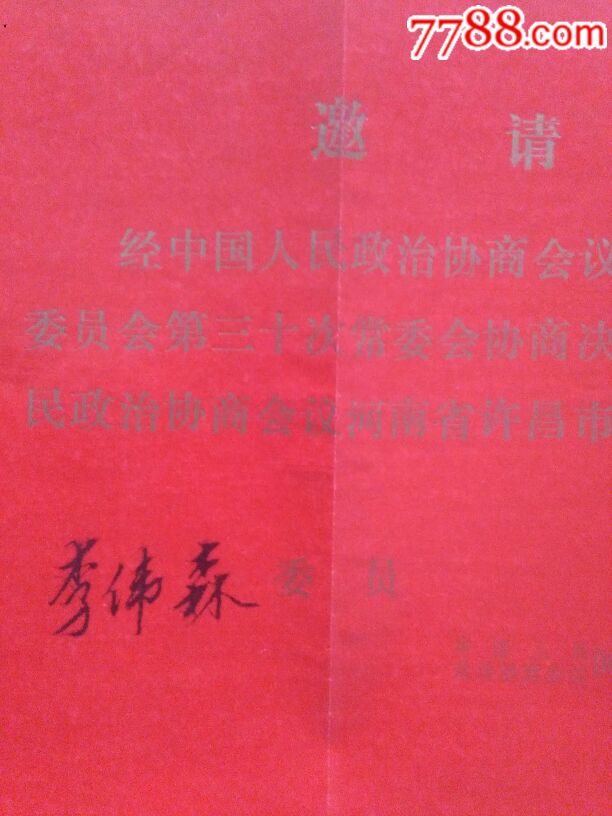 7788.com
邀 请
经中国人民政治协商会议
委员会第三十次常委会协商决
民政治协商会议河南省许昌市
李伟森 委 员